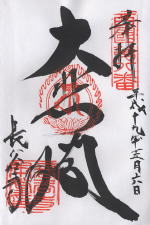 奉拝
平成十九年五月六日
大悲閣
長谷寺